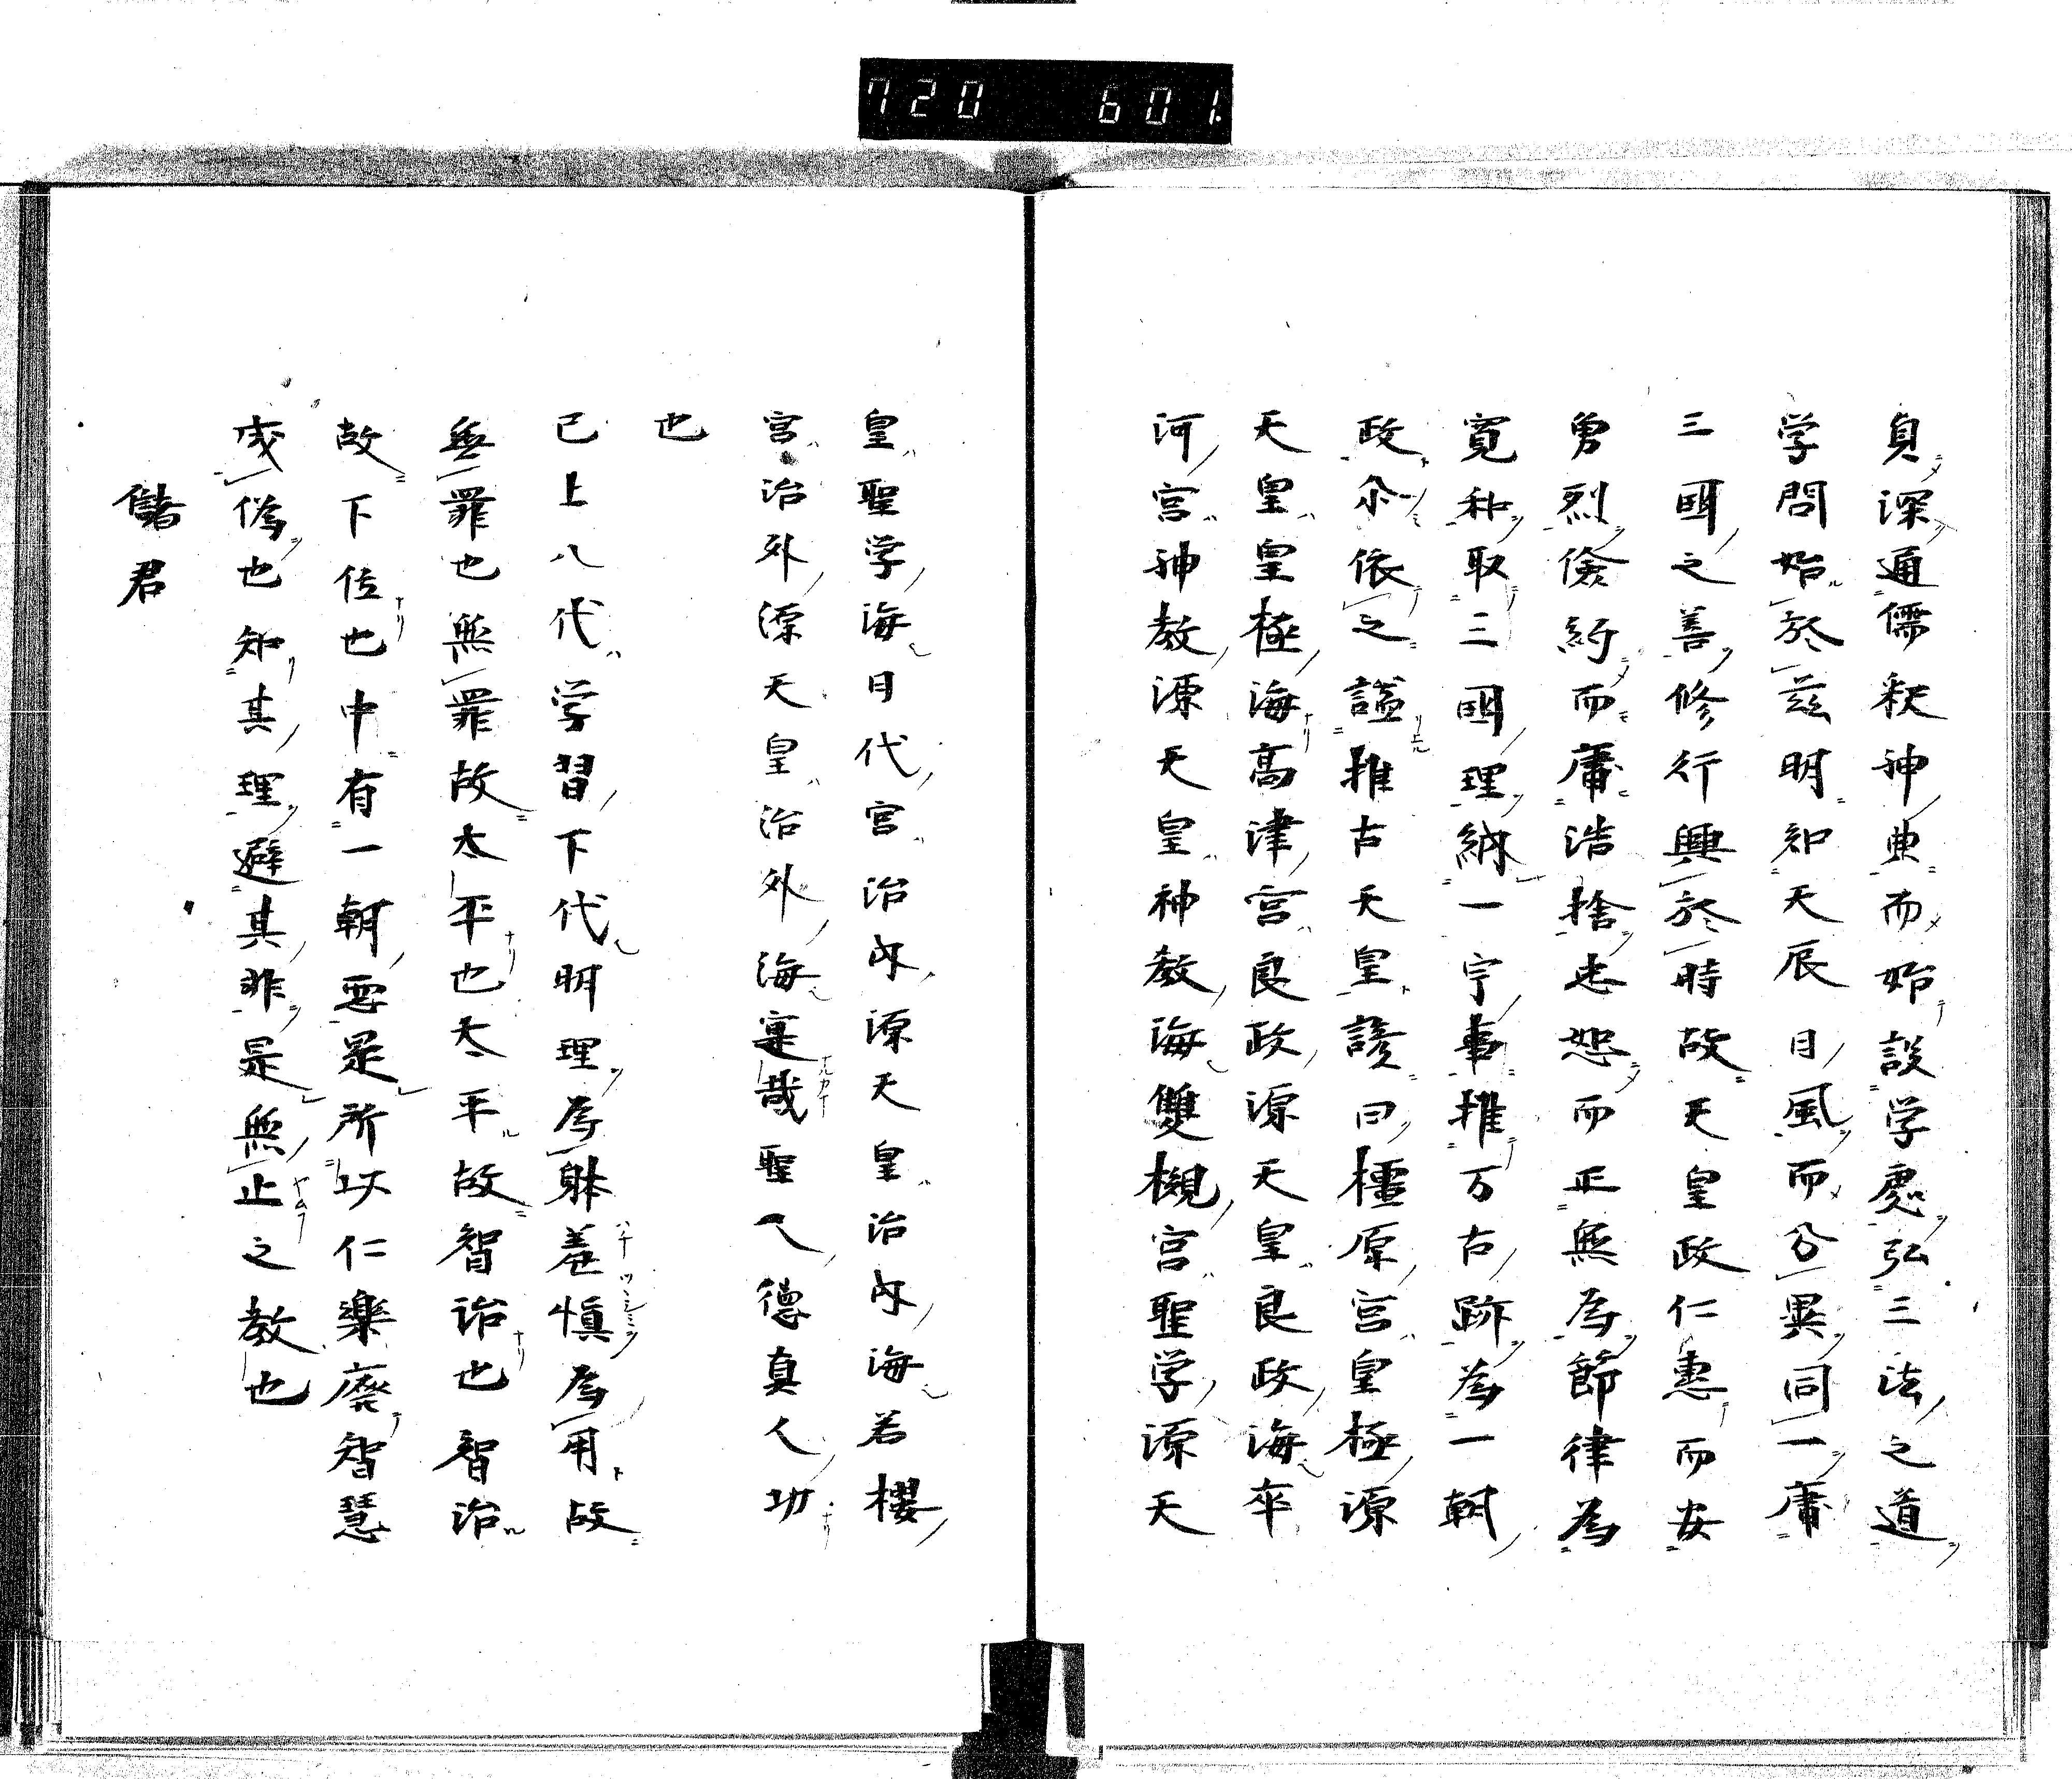 720 601
貞深通儒釈神典而始設学處弘三法之道
学問始於茲明知天辰日風而分異同一庸
三國之善修行興於時故天皇政仁惠而安
勇烈儉約而庸浩捨忠恕而正無為節律為
寛和取三國理納一宇事推万古跡為一朝
政尒依之謚推古天皇讃曰橿原宮皇極源
天皇皇極海高津宮良政源天皇良政海卒
河宮神教源天皇神教海雙槻宮聖学源天
皇聖学海日代宮治内源天皇治内海若櫻
宮治外源天皇治外海寔哉聖人德真人功
也
已上八代学習下代明理為躰羞慎為用故
無罪也無罪故太平也太平故智治也智治
故下位也中有一朝悪是所以仁樂廃智慧
成偽也知其理避其非是無止之教也
儲君